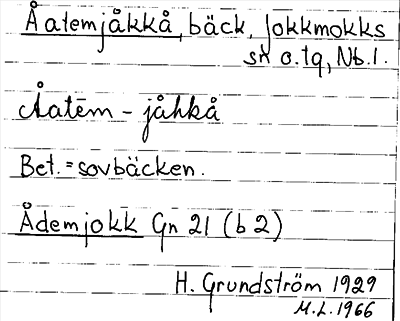 Åatemjåkkå, bäck, Jokkmokks
sn o. tg, Nb. l.
Åatēm - jåhkå
Bet. = sovbäcken.
Ådemjokk Gn 21 (b 2)
H. Grundström 1929
M.L. 1966